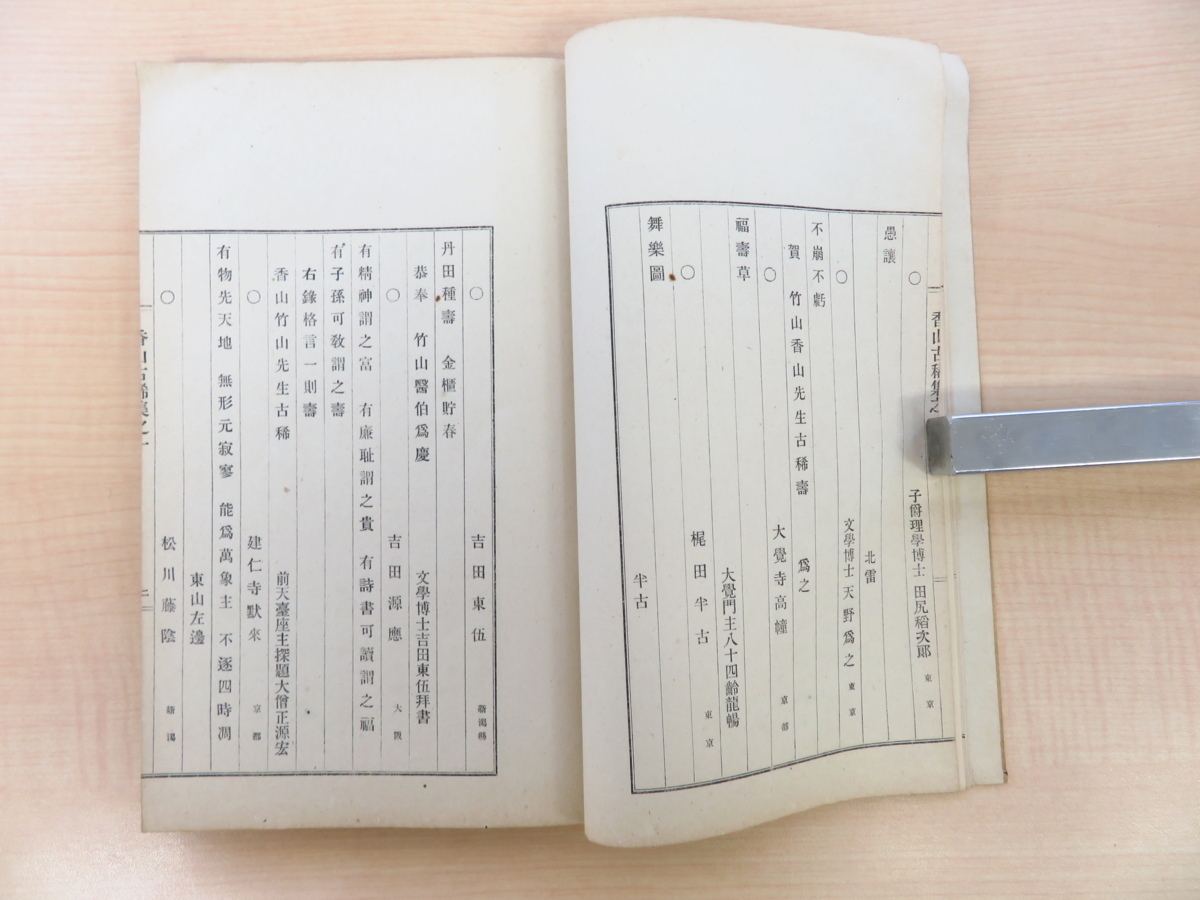 香山古稀集之
○ 子爵理學博士 田尻稻次郞 東京
愚讓
北雷
○ 文學博士 天野爲之 東京
不崩不虧
賀 竹山香山先生古稀壽 爲之
○ 大覺寺高幢 京都
福壽草
大覺門主八十四齡龍暢
○ 梶田半古 東京
舞樂圖
半古
○ 吉田東伍 新潟縣
丹田種壽 金櫃貯春
恭奉 竹山醫伯爲慶 文學博士吉田東伍拜書
○ 吉田源應 大阪
有精神謂之富 有廉耻謂之貴 有詩書可讀謂之福
有子孫可敎謂之壽
右錄格言一則壽
香山竹山先生古稀 前天臺座主探題大僧正源宏
○ 建仁寺默來 京都
有物先天地 無形元寂寥 能爲萬象主 不逐四時凋
東山左邊
○ 松川藤陰 新潟
香山古稀集之